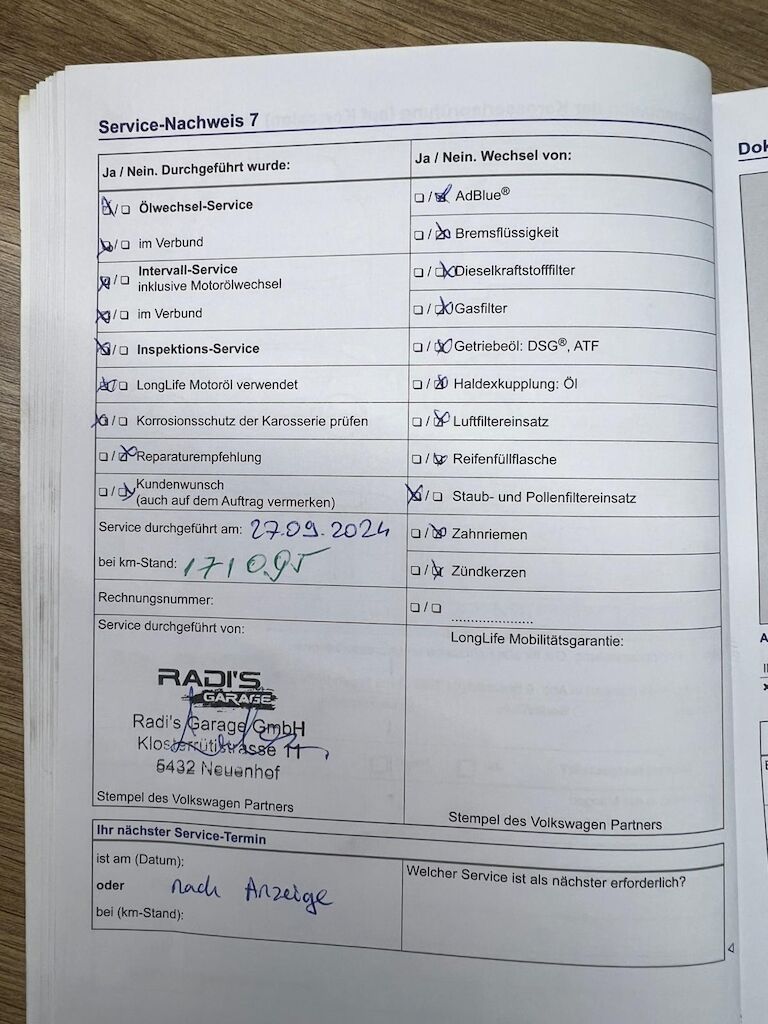 Service-Nachweis 7
Ja / Nein. Durchgeführt wurde:
Ölwechsel-Service
im Verbund
Intervall-Service
inklusive Motorölwechsel
im Verbund
Inspektions-Service
LongLife Motoröl verwendet
Korrosionsschutz der Karosserie prüfen
Reparaturempfehlung
Kundenwunsch
(auch auf dem Auftrag vermerken)
Service durchgeführt am: 27.09.2024
bei km-Stand: 171095
Rechnungsnummer:
Service durchgeführt von:
RADI'S
GARAGE
Radi's Garage GmbH
Klosterrütistrasse 11
5432 Neuenhof
Stempel des Volkswagen Partners
Ja / Nein. Wechsel von:
AdBlue®
Bremsflüssigkeit
Dieselkraftstofffilter
Gasfilter
Getriebeöl: DSG®, ATF
Haldexkupplung: Öl
Luftfiltereinsatz
Reifenfüllflasche
Staub- und Pollenfiltereinsatz
Zahnriemen
Zündkerzen
LongLife Mobilitätsgarantie:
Stempel des Volkswagen Partners
Ihr nächster Service-Termin
ist am (Datum):
oder nach Anzeige
bei (km-Stand):
Welcher Service ist als nächster erforderlich?
Dok